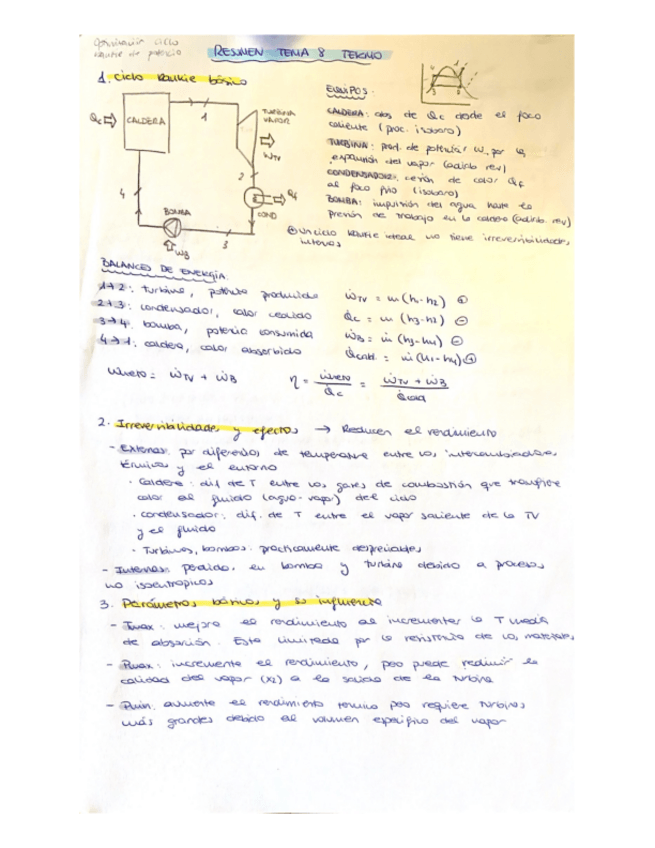 RESUMEN TEMA 8 TERMO
1. Ciclo Rankie básico
EQUIPOS.
CALDERA: abs de Qc desde el foco
caliente (proc. isobaro)
TURBINA: prod. de potencia Ẇ por la
expansión del vapor (adiab rev)
CONDENSADOR: cesión de calor Qf
al foco frío (isobaro)
BOMBA: impulsión del agua hasta la
presión de trabajo en la caldera (adiab. rev)
Un ciclo Rankie ideal no tiene irreversibilidades
internas
Qc
CALDERA
1
TURBINA
VAPOR
ẆTV
2
Qf
COND
4
BOMBA
3
ẆB
BALANCES DE ENERGÍA:
1→2: turbina, potencia producida ẆTV = ṁ (h1-h2) +
2→3: condensador, calor cedido Q̇c = ṁ (h3-h2) -
3→4: bomba, potencia consumida ẆB = ṁ (h3-h4) -
4→1: caldera, calor absorbido Q̇cald. = ṁ (h1-h4) +
Ẇneto = ẆTV + ẆB η = Ẇneto / Q̇c = ẆTV + ẆB / Q̇cald
2. Irreversibilidades y efectos → Reducen el rendimiento
- Externas: por diferencias de temperatura entre los intercambiadores
térmicos y el entorno
· Caldera: dif de T entre los gases de combustión que transfiere
calor al fluido (agua-vapor) del ciclo
· Condensador: dif. de T entre el vapor saliente de la TV
y el fluido
· Turbinas, bombas: prácticamente despreciables
- Internas: perdidas en bomba y turbina debido a procesos
no isoentropicos
3. Parámetros básicos y su influencia
- Tmax: mejora el rendimiento al incrementar la T media
de absorción. Esta limitada por la resistencia de los materiales
- Pmax: incrementa el rendimiento, pero puede reducir la
calidad del vapor (x2) a la salida de la turbina
- Pmin: aumenta el rendimiento termico pero requiere turbinas
más grandes debido al volumen específico del vapor